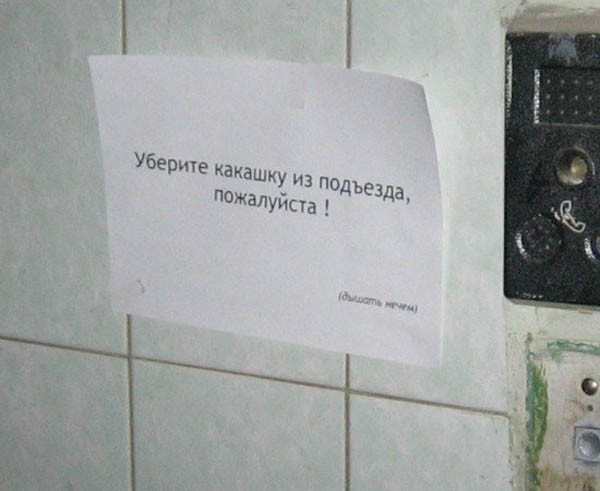 Уберите какашку из подъезда,
пожалуйста !
(дышать нечем)